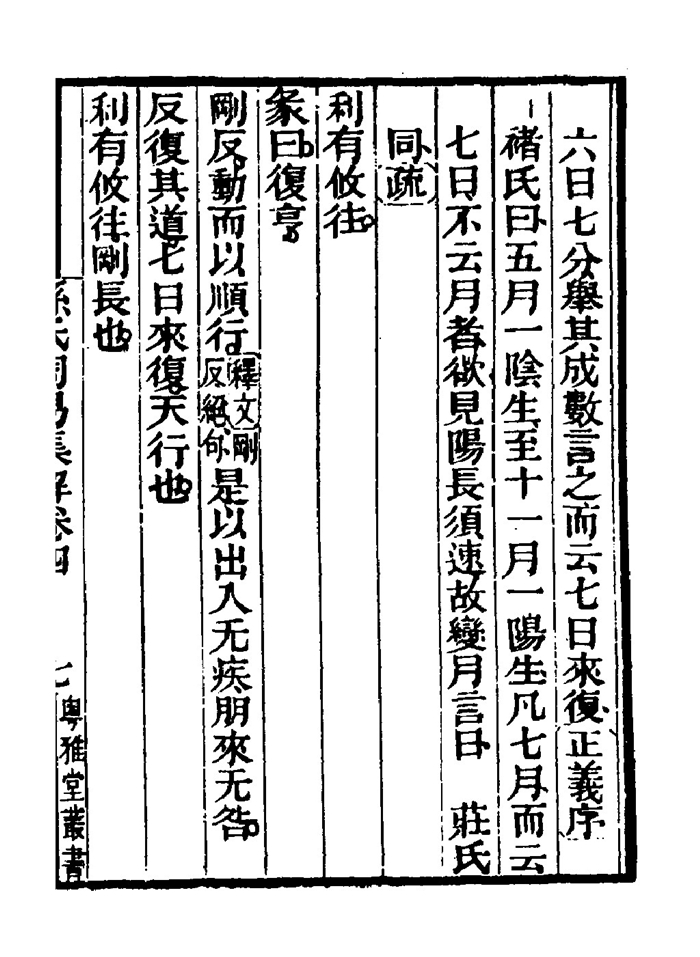 六日七分舉其成數言之而云七日來復正義序
褚氏曰五月一陰生至十一月一陽生凡七月而云
七日不云月者欲見陽長須速故變月言日　莊氏
同疏
利有攸往
彖曰復亨
剛反動而以順行釋文剛反絕句是以出入无疾朋來无咎
反復其道七日來復天行也
利有攸往剛長也
孫氏周易集解卷四　七　粵雅堂叢書